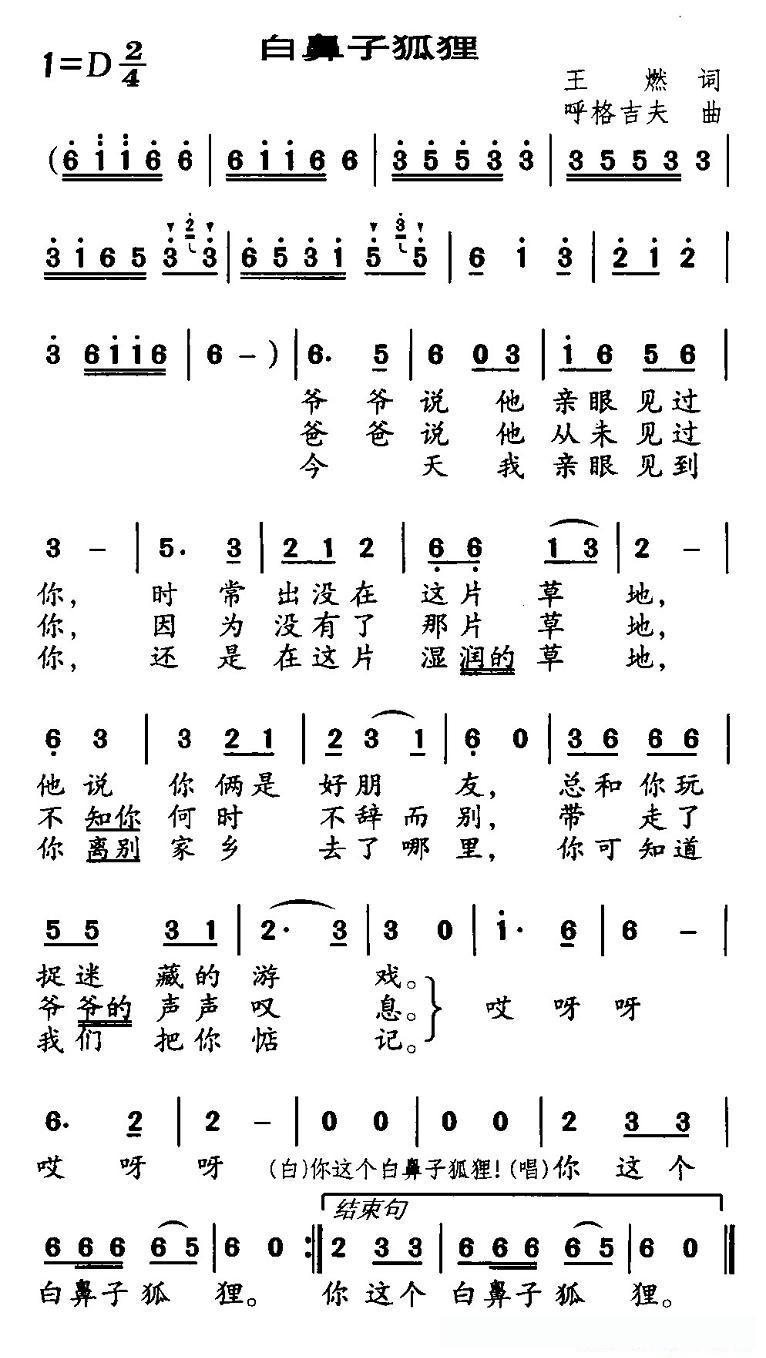 白鼻子狐狸
1=D 2/4
王 燃 词
呼格吉夫 曲
(6 i i i 6 6 | 6 i i 6 6 | 3 5 5 3 3 | 3 5 5 3 3 |
3 i 6 5 3 2 3 | 6 5 3 1 5 3 5 | 6 i 3 | 2 i 2 |
3 6 i i 6 | 6 - ) | 6. 5 | 6 0 3 | i 6 5 6 |
爷 爷 说 他 亲 眼 见 过
爸 爸 说 他 从 未 见 过
今 天 我 亲 眼 见 到
3 - | 5. 3 | 2 1 2 | 6 6 1 3 | 2 - |
你, 时 常 出 没 在 这 片 草 地,
你, 因 为 没 有 了 那 片 草 地,
你, 还 是 在 这 片 湿 润的 草 地,
6 3 | 3 2 1 | 2 3 1 | 6 0 | 3 6 6 6 |
他 说 你 俩 是 好 朋 友, 总 和 你 玩
不 知你 何 时 不 辞 而 别, 带 走 了
你 离别 家 乡 去 了 哪 里, 你 可 知 道
5 5 3 1 | 2· 3 | 3 0 | i· 6 | 6 - |
捉 迷 藏 的 游 戏。
爷 爷的 声 声 叹 息。} 哎 呀 呀
我 们 把 你 惦 记。
6. 2 | 2 - | 0 0 | 0 0 | 2 3 3 |
哎 呀 呀 (白)你这个白鼻子狐狸!(唱)你 这 个
结束句
6 6 6 6 5 | 6 0 :| 2 3 3 | 6 6 6 6 5 | 6 0 ||
白 鼻 子 狐 狸。 你 这 个 白 鼻 子 狐 狸。